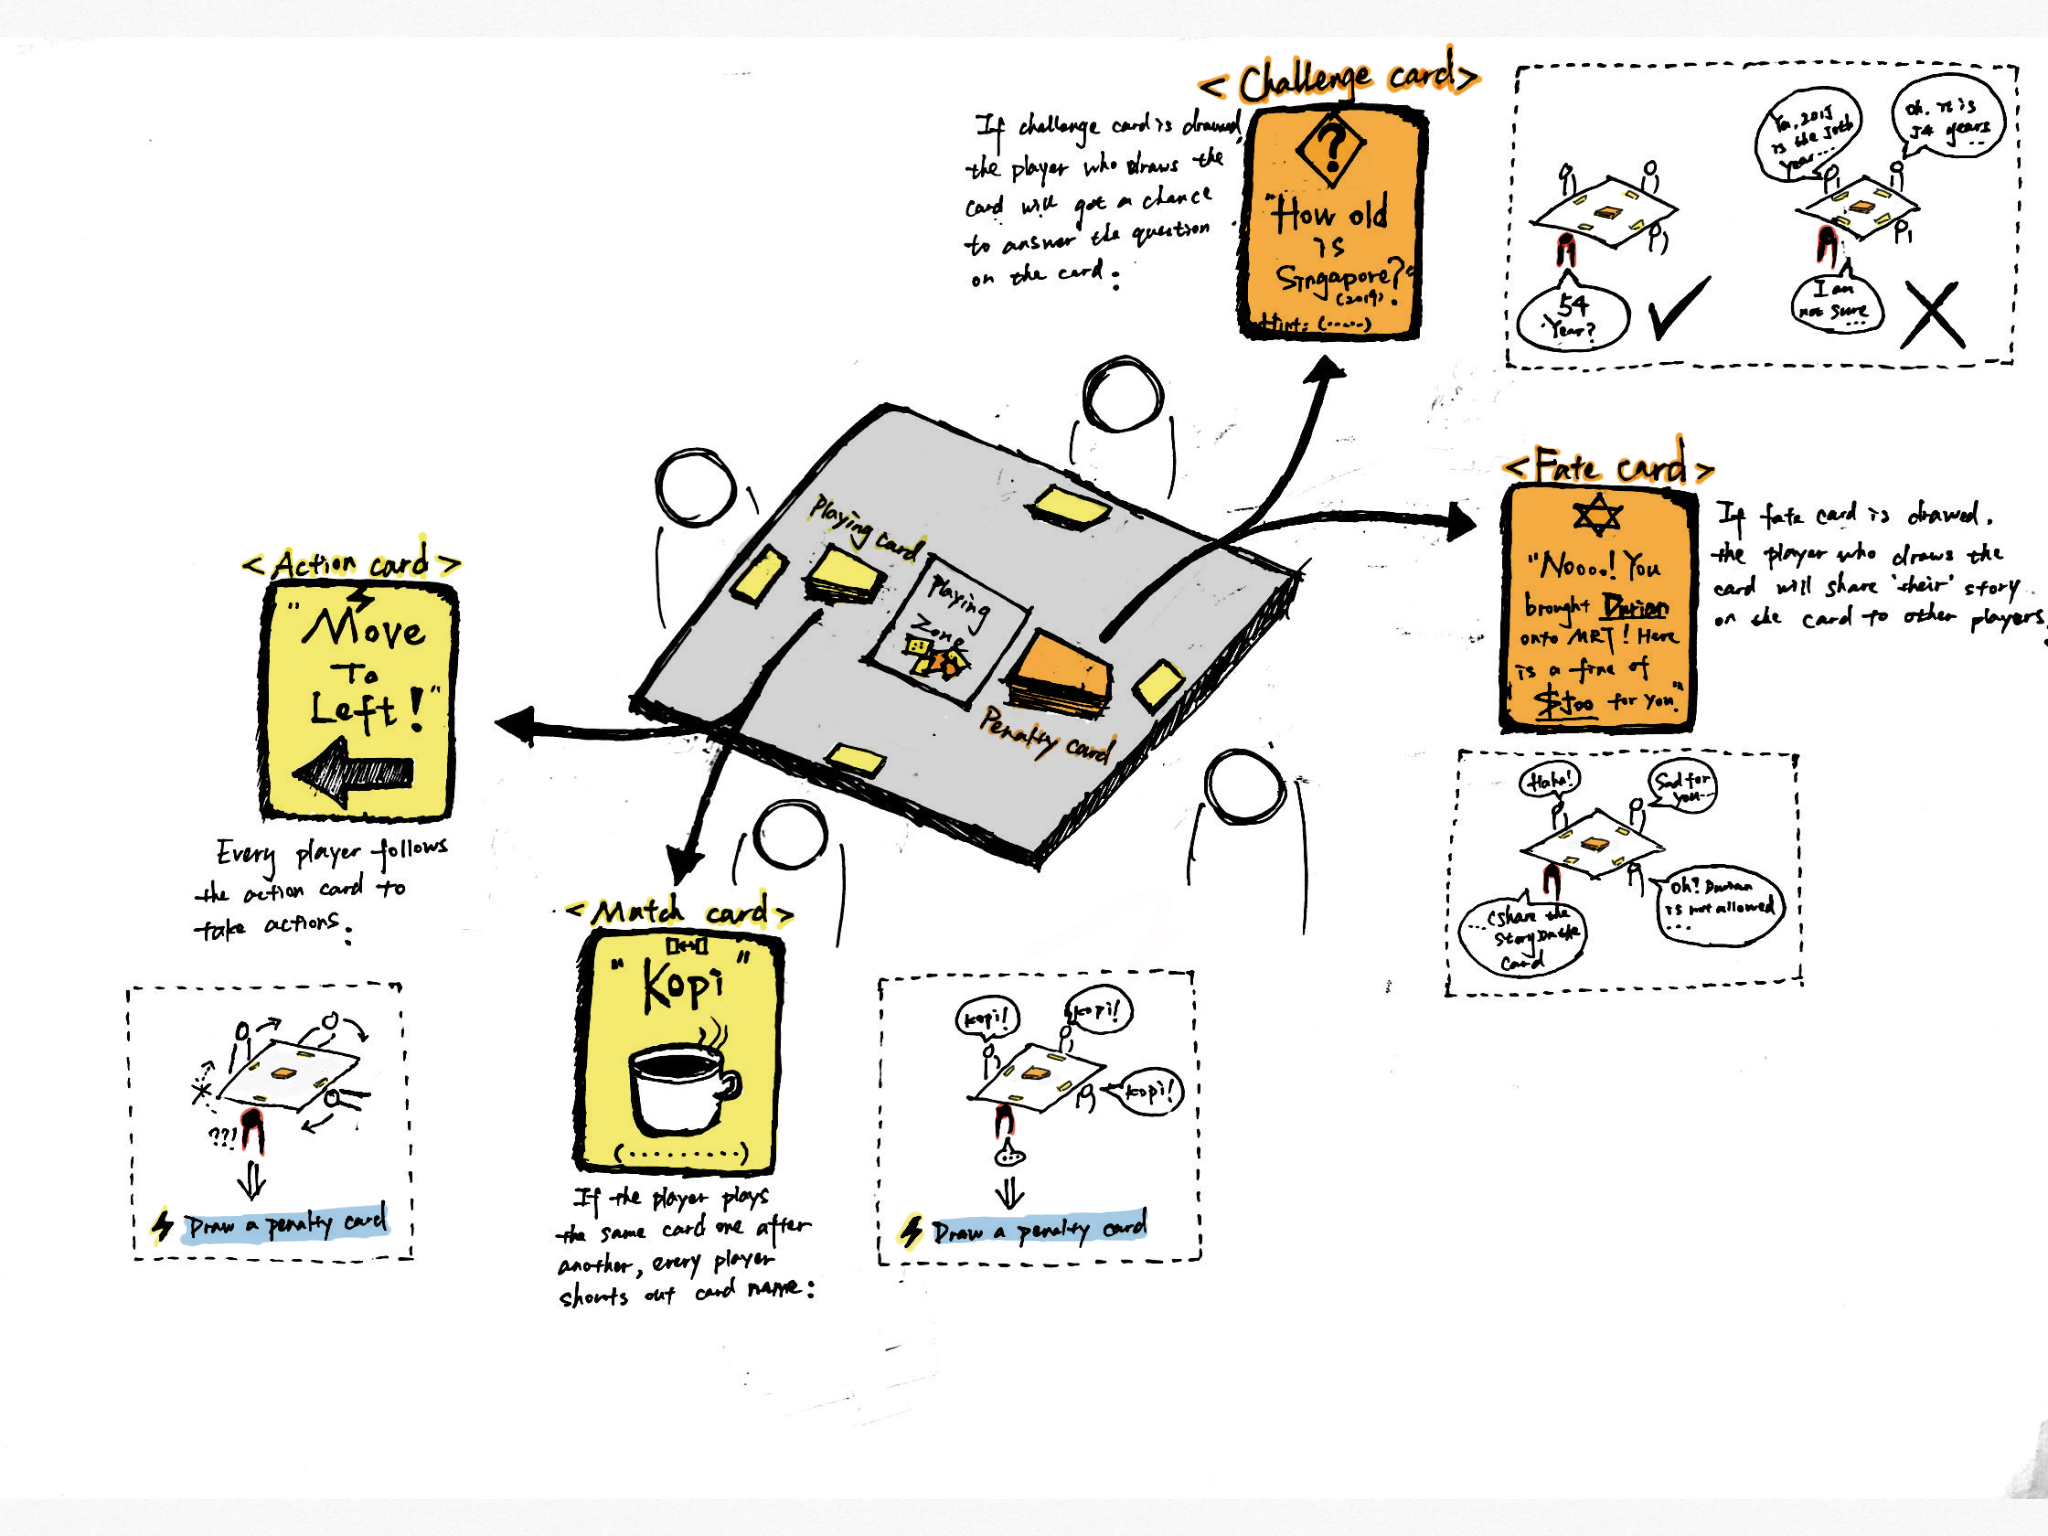 <Challenge card>
If challenge card is drawed,
the player who draws the
card will got a chance
to answer the question
on the card:
?
"How old
is
Singapore?"
(2019).
Hint: (.....)
Ya, 2015
is the 50th
year...
Oh, it is
54 years
...
54
Year?
I am
not sure
...
<Fate card>
"Nooo.! You
brought Durian
onto MRT! Here
is a fine of
$500 for you."
If fate card is drawed.
the player who draws the
card will share 'their' story
on the card to other players.
Haha!
Sad for
you...
...(share the
story on the
card
Oh! Durian
is not allowed
...
Playing card
Playing
Zone
Penalty card
<Action card>
"Move
To
Left!"
Every player follows
the action card to
take actions:
??!
Draw a penalty card
<Match card>
"Kopi"
(.........)
If the player plays
the same card one after
another, every player
shouts out card name:
Kopi!
Kopi!
Kopi!
...
Draw a penalty card